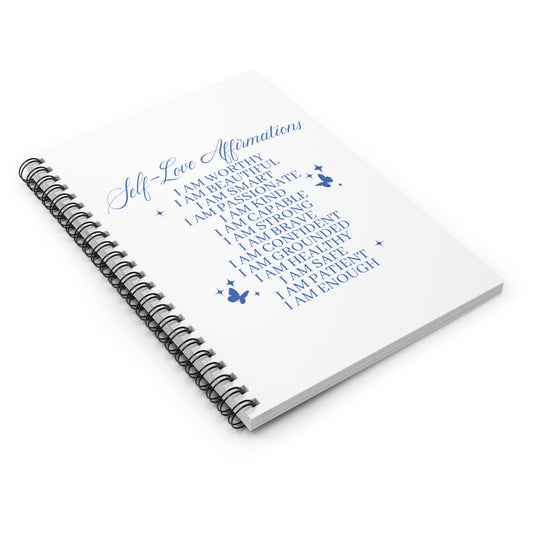 Self-Love Affirmations
I AM WORTHY
I AM BEAUTIFUL
I AM SMART
I AM PASSIONATE
I AM KIND
I AM CAPABLE
I AM STRONG
I AM BRAVE
I AM CONFIDENT
I AM GROUNDED
I AM HEALTHY
I AM SAFE
I AM PATIENT
I AM ENOUGH